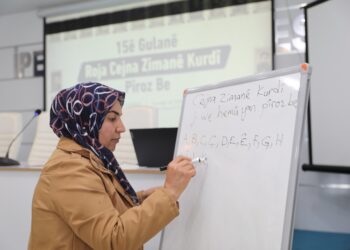 15ê Gulanê
Roja Cejna Zimanê Kurdî
Piroz Be
Cejna Zimanê Kurdî
we hemûyan pîroz be
A, B, C, Ç, D, E, Ê, F, G, H